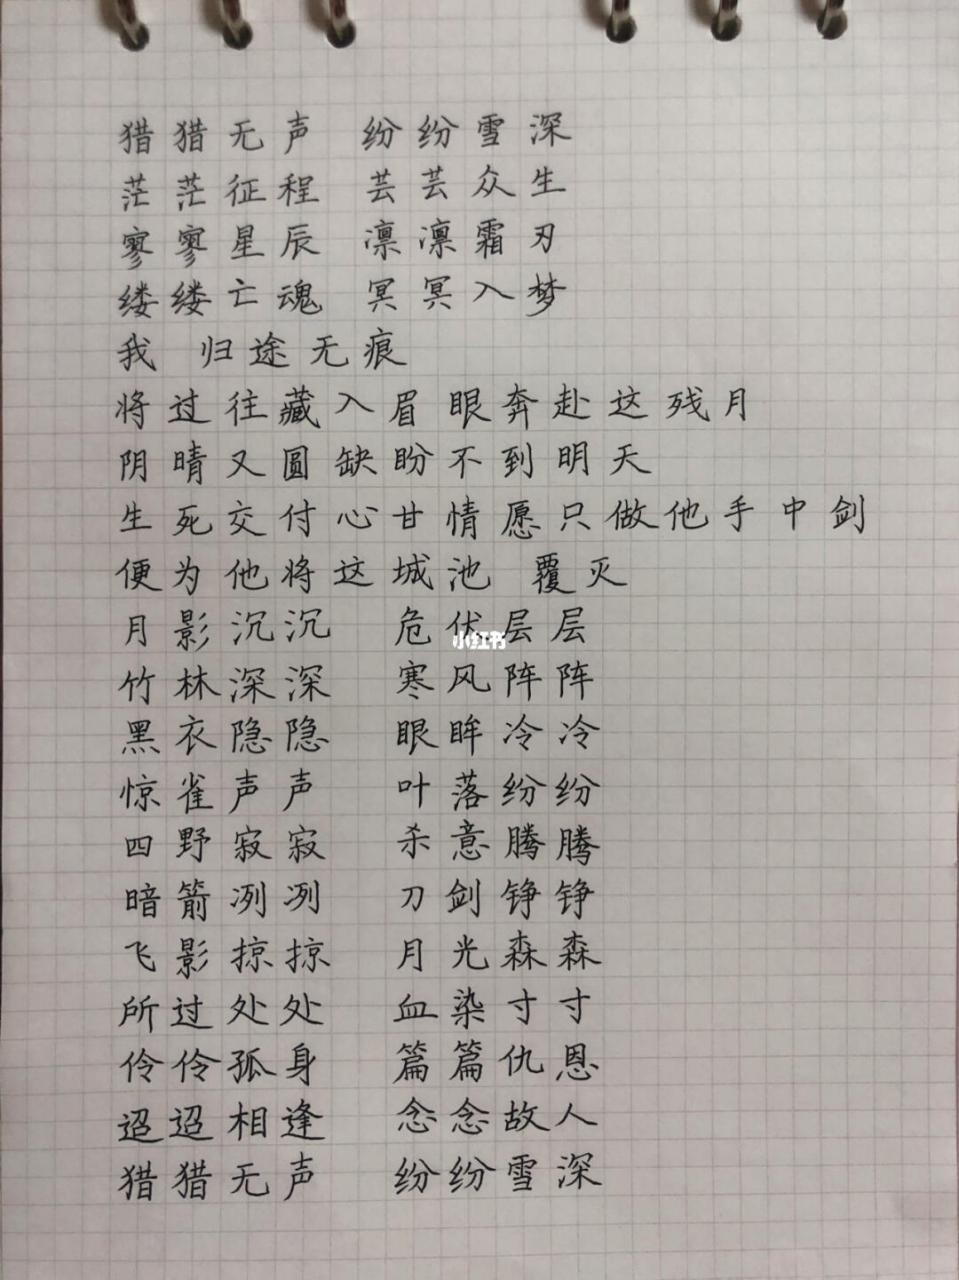 猎猎无声 纷纷雪深
茫茫征程 芸芸众生
寥寥星辰 凛凛霜刃
缕缕亡魂 冥冥入梦
我 归途无痕
将过往藏入眉眼奔赴这残月
阴晴又圆缺盼不到明天
生死交付心甘情愿只做他手中剑
便为他将这城池 覆灭
月影沉沉 危伏层层
小红书
竹林深深 寒风阵阵
黑衣隐隐 眼眸冷冷
惊雀声声 叶落纷纷
四野寂寂 杀意腾腾
暗箭冽冽 刀剑铮铮
飞影掠掠 月光森森
所过处处 血染寸寸
伶伶孤身 篇篇仇恩
迢迢相逢 念念故人
猎猎无声 纷纷雪深